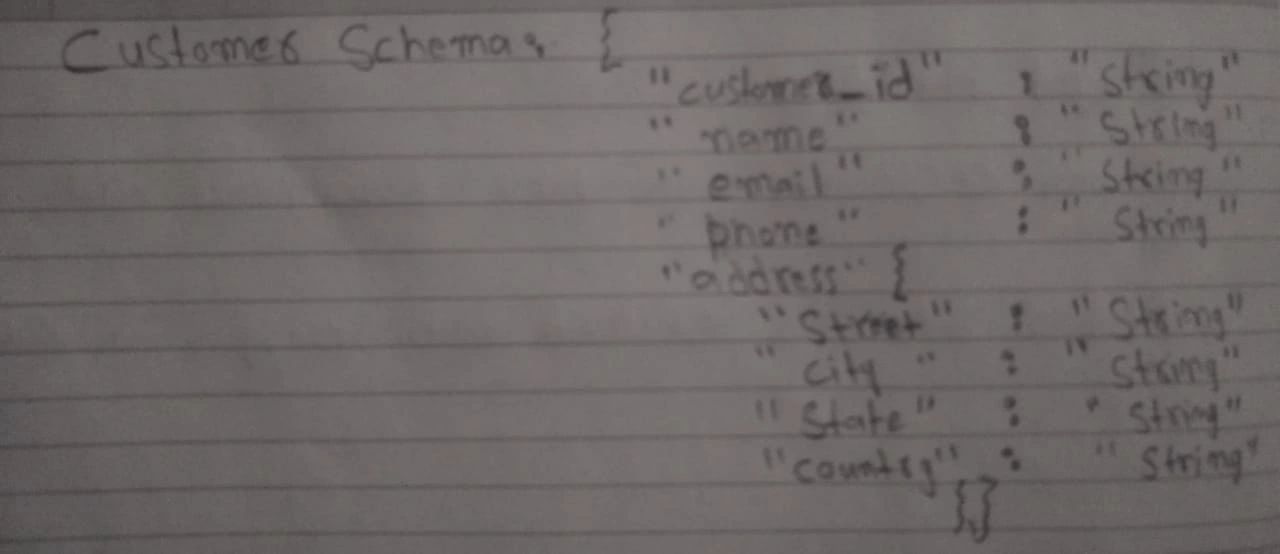 Customer Schema: {
"customer_id" : "String"
"name" : "String"
"email" : "String"
"phone" : "String"
"address" {
"Street" : "String"
"city" : "String"
"State" : "String"
"country" : "String"
}}